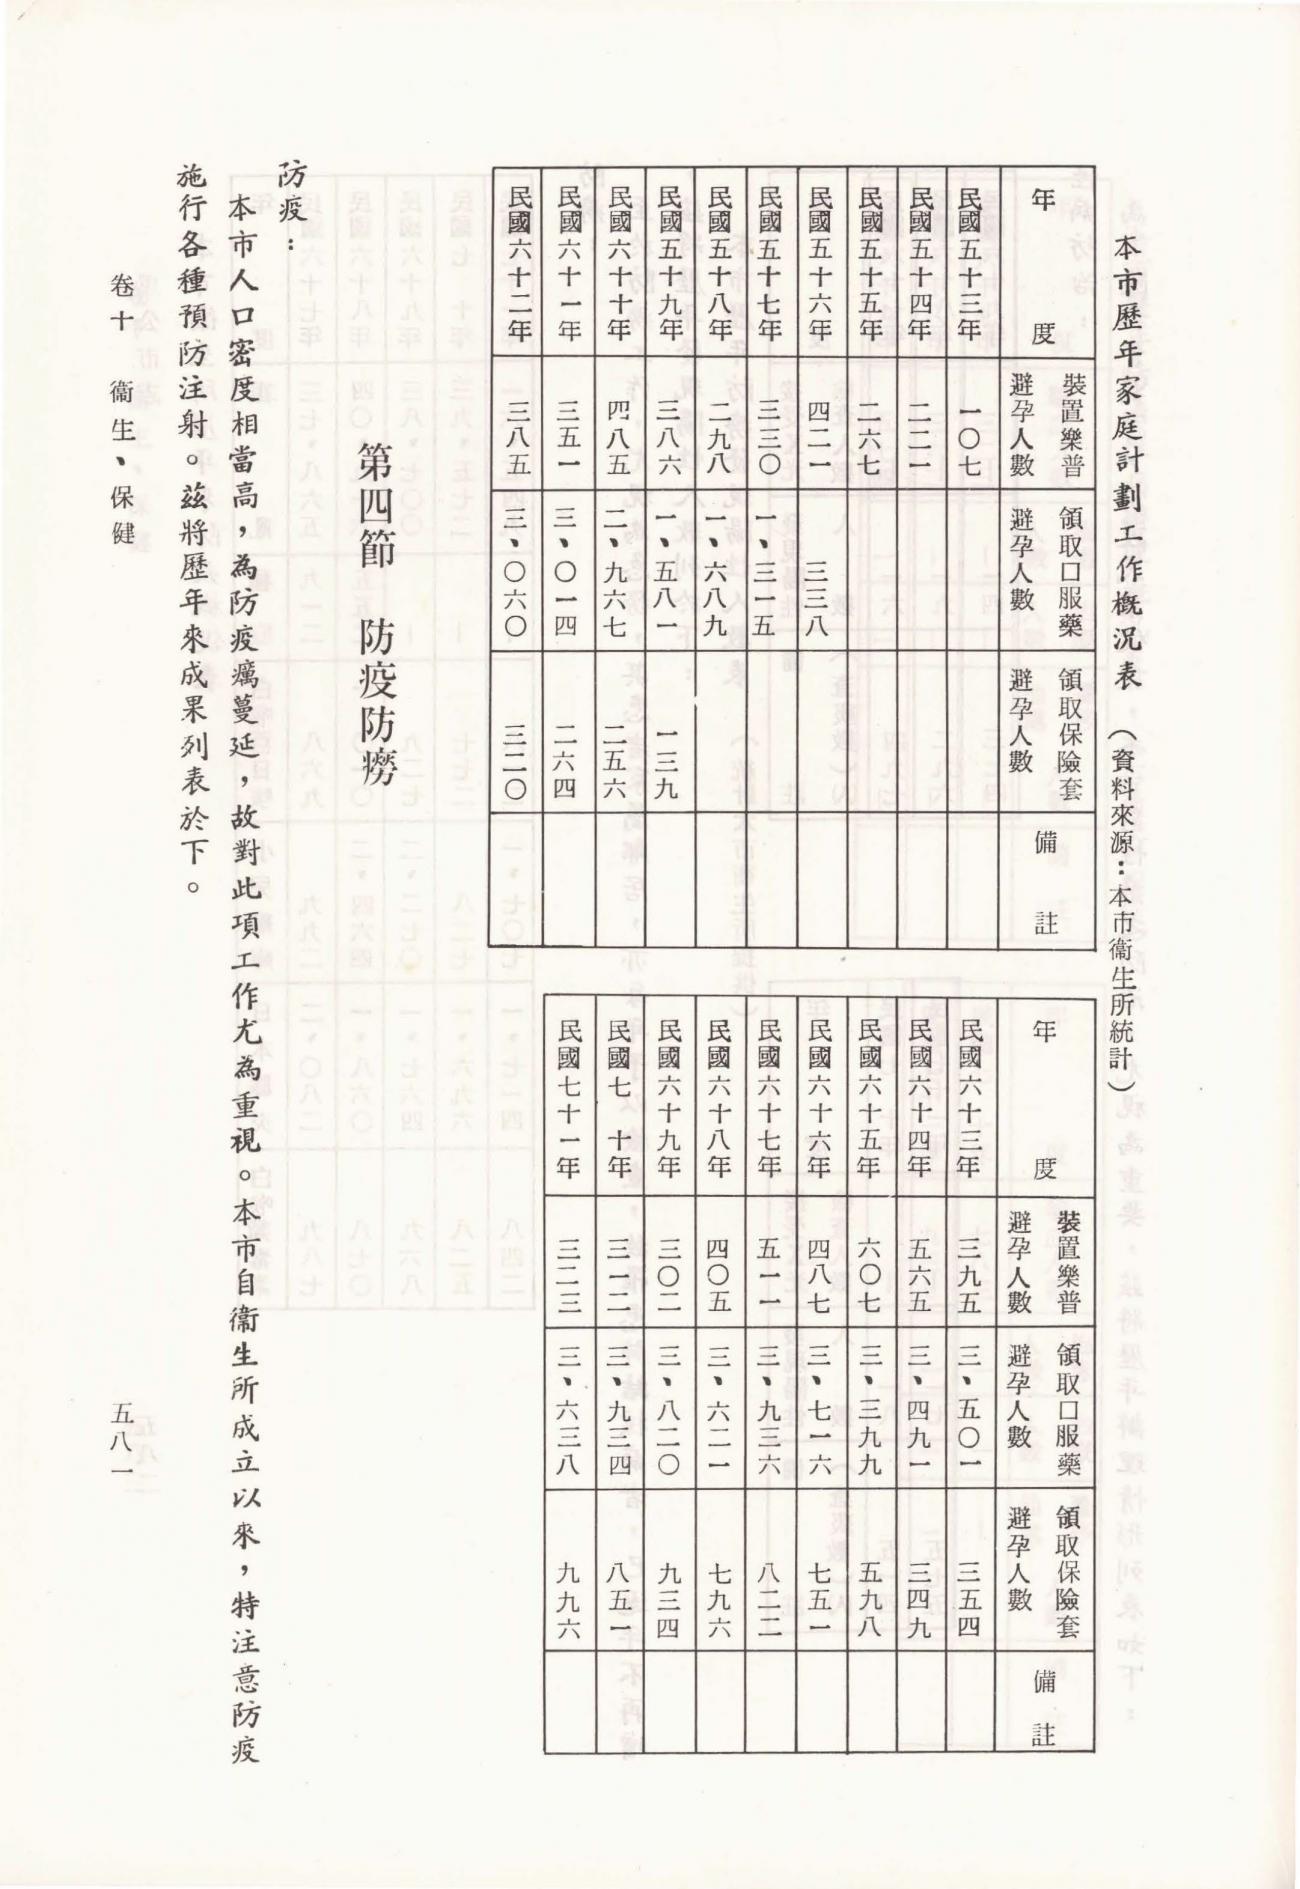 本市歷年家庭計劃工作概況表（資料來源：本市衞生所統計）
年　度　裝置樂普避孕人數　領取口服藥避孕人數　領取保險套避孕人數　備　註
民國五十三年　一〇七
民國五十四年　二二一
民國五十五年　二六七
民國五十六年　四二一　三三八
民國五十七年　三三〇　一、三一五
民國五十八年　二九八　一、六八九
民國五十九年　三八六　一、五八一　一三九
民國六十年　四八五　二、九六七　二五六
民國六十一年　三五一　三、〇一四　二六四
民國六十二年　三八五　三、〇六〇　三二〇
年　度　裝置樂普避孕人數　領取口服藥避孕人數　領取保險套避孕人數　備　註
民國六十三年　三九五　三、五〇一　三五四
民國六十四年　五六五　三、四九一　三四九
民國六十五年　六〇七　三、三九九　五九八
民國六十六年　四八七　三、七一六　七五一
民國六十七年　五一一　三、九三六　八二二
民國六十八年　四〇五　三、六二一　七九六
民國六十九年　三〇二　三、八二〇　九三四
民國七　十年　三一二　三、九三四　八五一
民國七十一年　三二三　三、六三八　九九六
第四節　防疫防癆
防疫：
本市人口密度相當高，為防疫癘蔓延，故對此項工作尤為重視。本市自衞生所成立以來，特注意防疫
施行各種預防注射。茲將歷年來成果列表於下。
卷十　衞生、保健
五八一